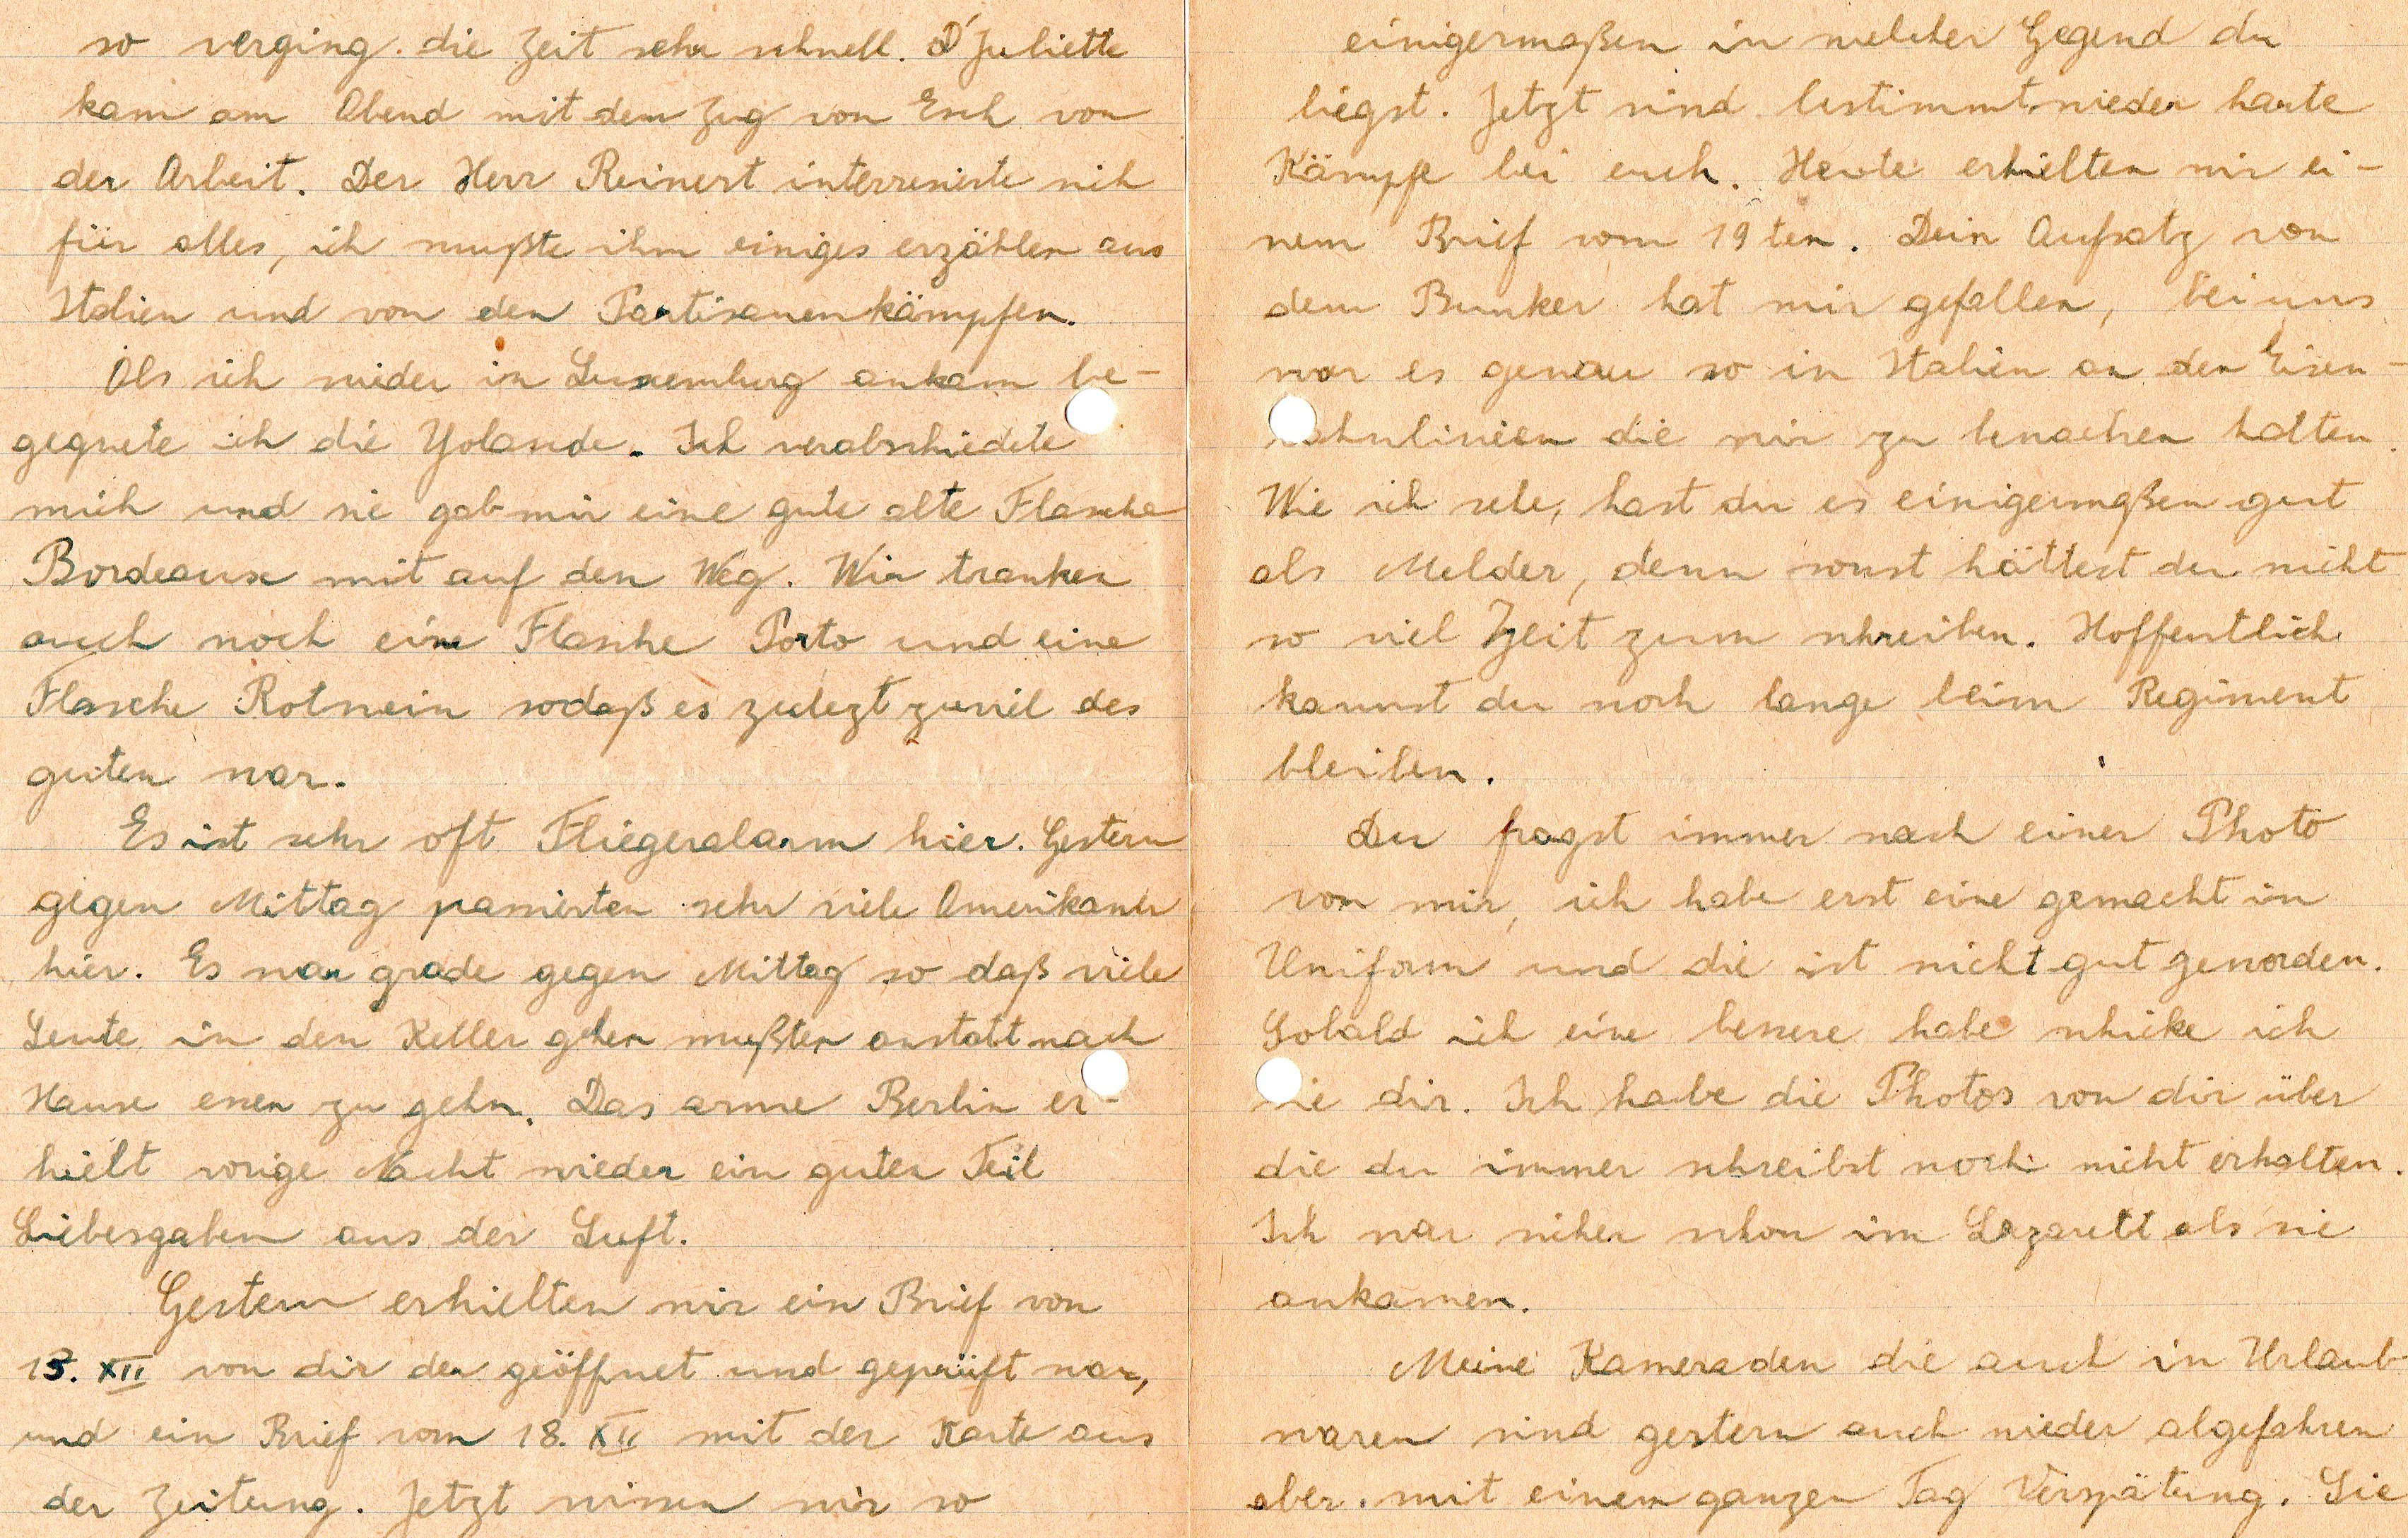 so verging die Zeit sehr schnell. D'Juliette
kam am Abend mit dem Zug von Esch von
der Arbeit. Der Herr Reinert interresierte sich
für alles, ich mußte ihm einiges erzählen aus
Italien und von den Partisanenkämpfen.
Als ich wieder in Luxemburg ankam be-
gegnete ich die Yolande. Ich verabschiedete
mich und sie gab mir eine gute alte Flasche
Bordeaux mit auf den Weg. Wir tranken
auch noch eine Flasche Porto und eine
Flasche Rotwein sodaß es zulezt zuviel des
guten war.
Es ist sehr oft Fliegeralarm hier. Gestern
gegen Mittag passierten sehr viele Amerikaner
hier. Es war grade gegen Mittag so daß viele
Leute in den Keller gehen mußten anstatt nach
Hause essen zu gehn. Das arme Berlin er-
hielt vorige Nacht wieder ein guten Teil
Liebesgaben aus der Luft.
Gestern erhielten wir ein Brief von
15. XII von dir der geöffnet und geprüft war,
und ein Brief vom 18. XII mit der Karte aus
der Zeitung. Jetzt wissen wir so
einigermaßen in welcher Gegend du
liegst. Jetzt sind bestimmt wieder harte
Kämpfe bei euch. Heute erhielten wir ei-
nem Brief vom 19ten. Dein Aufsatz von
dem Bunker hat mir gefallen, bei uns
war es genau so in Italien an den Eisen-
bahnlinien die wir zu bewachen hatten.
Wie ich sehe, hast du es einigermaßen gut
als Melder, denn sonst hättest du nicht
so viel Zeit zum schreiben. Hoffentlich
kannst du noch lange beim Regiment
bleiben.
Du fragst immer nach einer Photo
von mir, ich habe erst eine gemacht in
Uniform und die ist nicht gut geworden.
Sobald ich eine bessere habe schicke ich
sie dir. Ich habe die Photos von dir über
die du immer schreibst noch nicht erhalten.
Ich war sicher schon im Lazarett als sie
ankamen.
Meine Kameraden die auch in Urlaub
waren sind gestern auch wieder abgefahren
aber mit einem ganzen Tag Verspätung. Sie